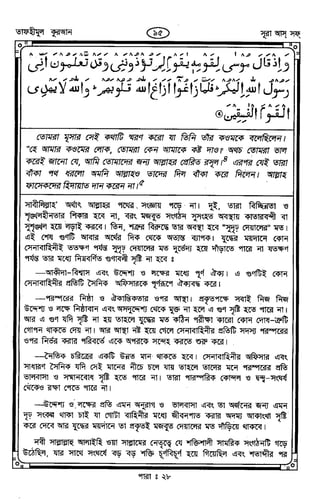 তাফহীমুল কুরআন
৯৫
সূরা আস্ সফ্
وَإِذْ قَالَ مُوسَىٰ لِقَوْمِهِ يَٰقَوْمِ لِمَ تُؤْذُونَنِي وَقَدْ تَعْلَمُونَ أَنِّي
رَسُولُ اللَّهِ إِلَيْكُمْ ۖ فَلَمَّا زَاغُوا أَزَاغَ اللَّهُ قُلُوبَهُمْ ۚ وَاللَّهُ لَا يَهْدِي
الْقَوْمَ الْفَٰسِقِينَ ۝
তোমরা মূসার সেই কথাটি স্মরণ করো যা তিনি তাঁর কওমকে বলেছিলেন।
"হে আমার কওমের লোক, তোমরা কেন আমাকে কষ্ট দাও? অথচ তোমরা ভাল
করেই জানো যে, আমি তোমাদের জন্য আল্লাহর প্রেরিত রসূল।৪ এরপর যেই তারা
বাঁকা পথ ধরলো অমনি আল্লাহও তাদের দিল বাঁকা করে দিলেন। আল্লাহ
ফাসেকদের হিদায়াত দান করেন না।৫
সাবীলিল্লাহ' অর্থাৎ আল্লাহর পথের সংজ্ঞায় পড়ে না। দুই, তারা বিচ্ছিন্নতা ও
শৃঙ্খলহীনতার শিকার হবে না, বরং মজবুত সংগঠন সুসংহত অবস্থায় কাতারবন্দী বা
সুশৃংখল হয়ে লড়াই করবে। তিন, শত্রুর বিরুদ্ধে তার অবস্থা হবে "সুদৃঢ় দেয়ালের" মত।
এই শেষ গুণটি আবার অর্থের দিক থেকে অত্যন্ত ব্যাপক। যুদ্ধের ময়দানে কোন
সেনাবাহিনীই ততক্ষণ পর্যন্ত সুদৃঢ় দেয়ালের মত দুর্ভেদ্য হয়ে দাঁড়াতে পারে না যতক্ষণ
পর্যন্ত তার মধ্যে নিম্নবর্ণিত গুণাবলী সৃষ্টি না হবে ঃ
—আকীদা-বিশ্বাস এবং উদ্দেশ্য ও লক্ষ্যের মধ্যে পূর্ণ ঐক্য। এ গুণটিই কোন
সেনাবাহিনীর প্রতিটি সৈনিক অফিসারকে পূর্ণরূপে ঐক্যবদ্ধ করে।
—পরস্পরের নিষ্ঠা ও ঐকান্তিকতার ওপর আস্থা। প্রকৃতপক্ষে সবাই নিজ নিজ
উদ্দেশ্য ও লক্ষ্যে নিষ্ঠাবান এবং অসদুদ্দেশ্য থেকে মুক্ত না হলে এ গুণ সৃষ্টি হতে পারে না।
আর এ গুণ যদি সৃষ্টি না হয় তাহলে যুদ্ধের মত কঠিন পরীক্ষা কারো কোন দোষ-ত্রুটি
গোপন থাকতে দেয় না। আর আস্থা নষ্ট হয়ে গেলে সেনাবাহিনীর প্রতিটি সদস্য পরস্পরের
ওপর নির্ভর করার পরিবর্তে একে অপরকে সন্দেহ করতে শুরু করে।
—নৈতিক চরিত্রের একটি উন্নত মান থাকতে হবে। সেনাবাহিনীর অফিসার এবং
সাধারণ সৈনিক যদি সেই মানের নীচে চলে যায় তাহলে তাদের মনে পরস্পরের প্রতি
ভালবাসা ও সম্মানবোধ সৃষ্টি হতে পারে না। তারা পারস্পরিক কোন্দল ও দ্বন্দ্ব-সংঘর্ষ
থেকেও রক্ষা পেতে পারে না।
—উদ্দেশ্য ও লক্ষ্যের প্রতি এমন অনুরাগ ও ভালবাসা এবং তা অর্জনের জন্য এমন
দৃঢ় সংকল্প থাকা চাই যা গোটা বাহিনীর মধ্যে জীবনপাত করার অদম্য আকাংখা সৃষ্টি
করে দেবে আর যুদ্ধের ময়দানে তা প্রকৃতই মজবুত দেয়ালের মত দাঁড়িয়ে থাকবে।
নবী সাল্লাল্লাহু আলাইহি ওয়া সাল্লামের নেতৃত্বে যে শক্তিশালী সামরিক সংগঠনটি গড়ে
উঠেছিল, যার সাথে সংঘর্ষে বড় বড় শক্তি চূর্ণবিচূর্ণ হয়ে গিয়েছিল এবং শতাব্দীর পর
পারা ঃ ২৮